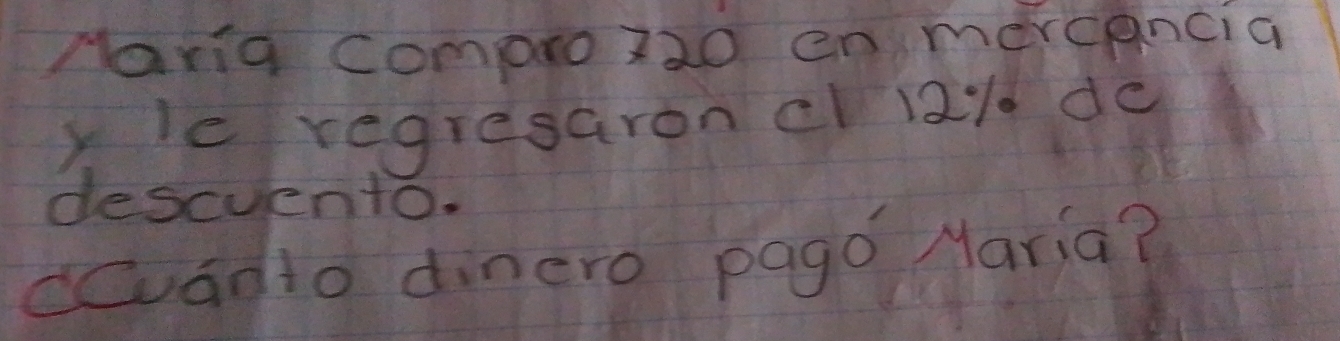 María compro 720 en mercancía
y le regresaron el 12% de
descuento.
¿Cuánto dinero pagó María?